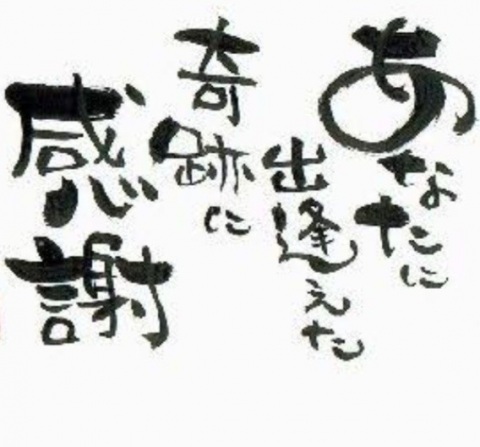 あなたに
出逢えた
奇跡に
感謝